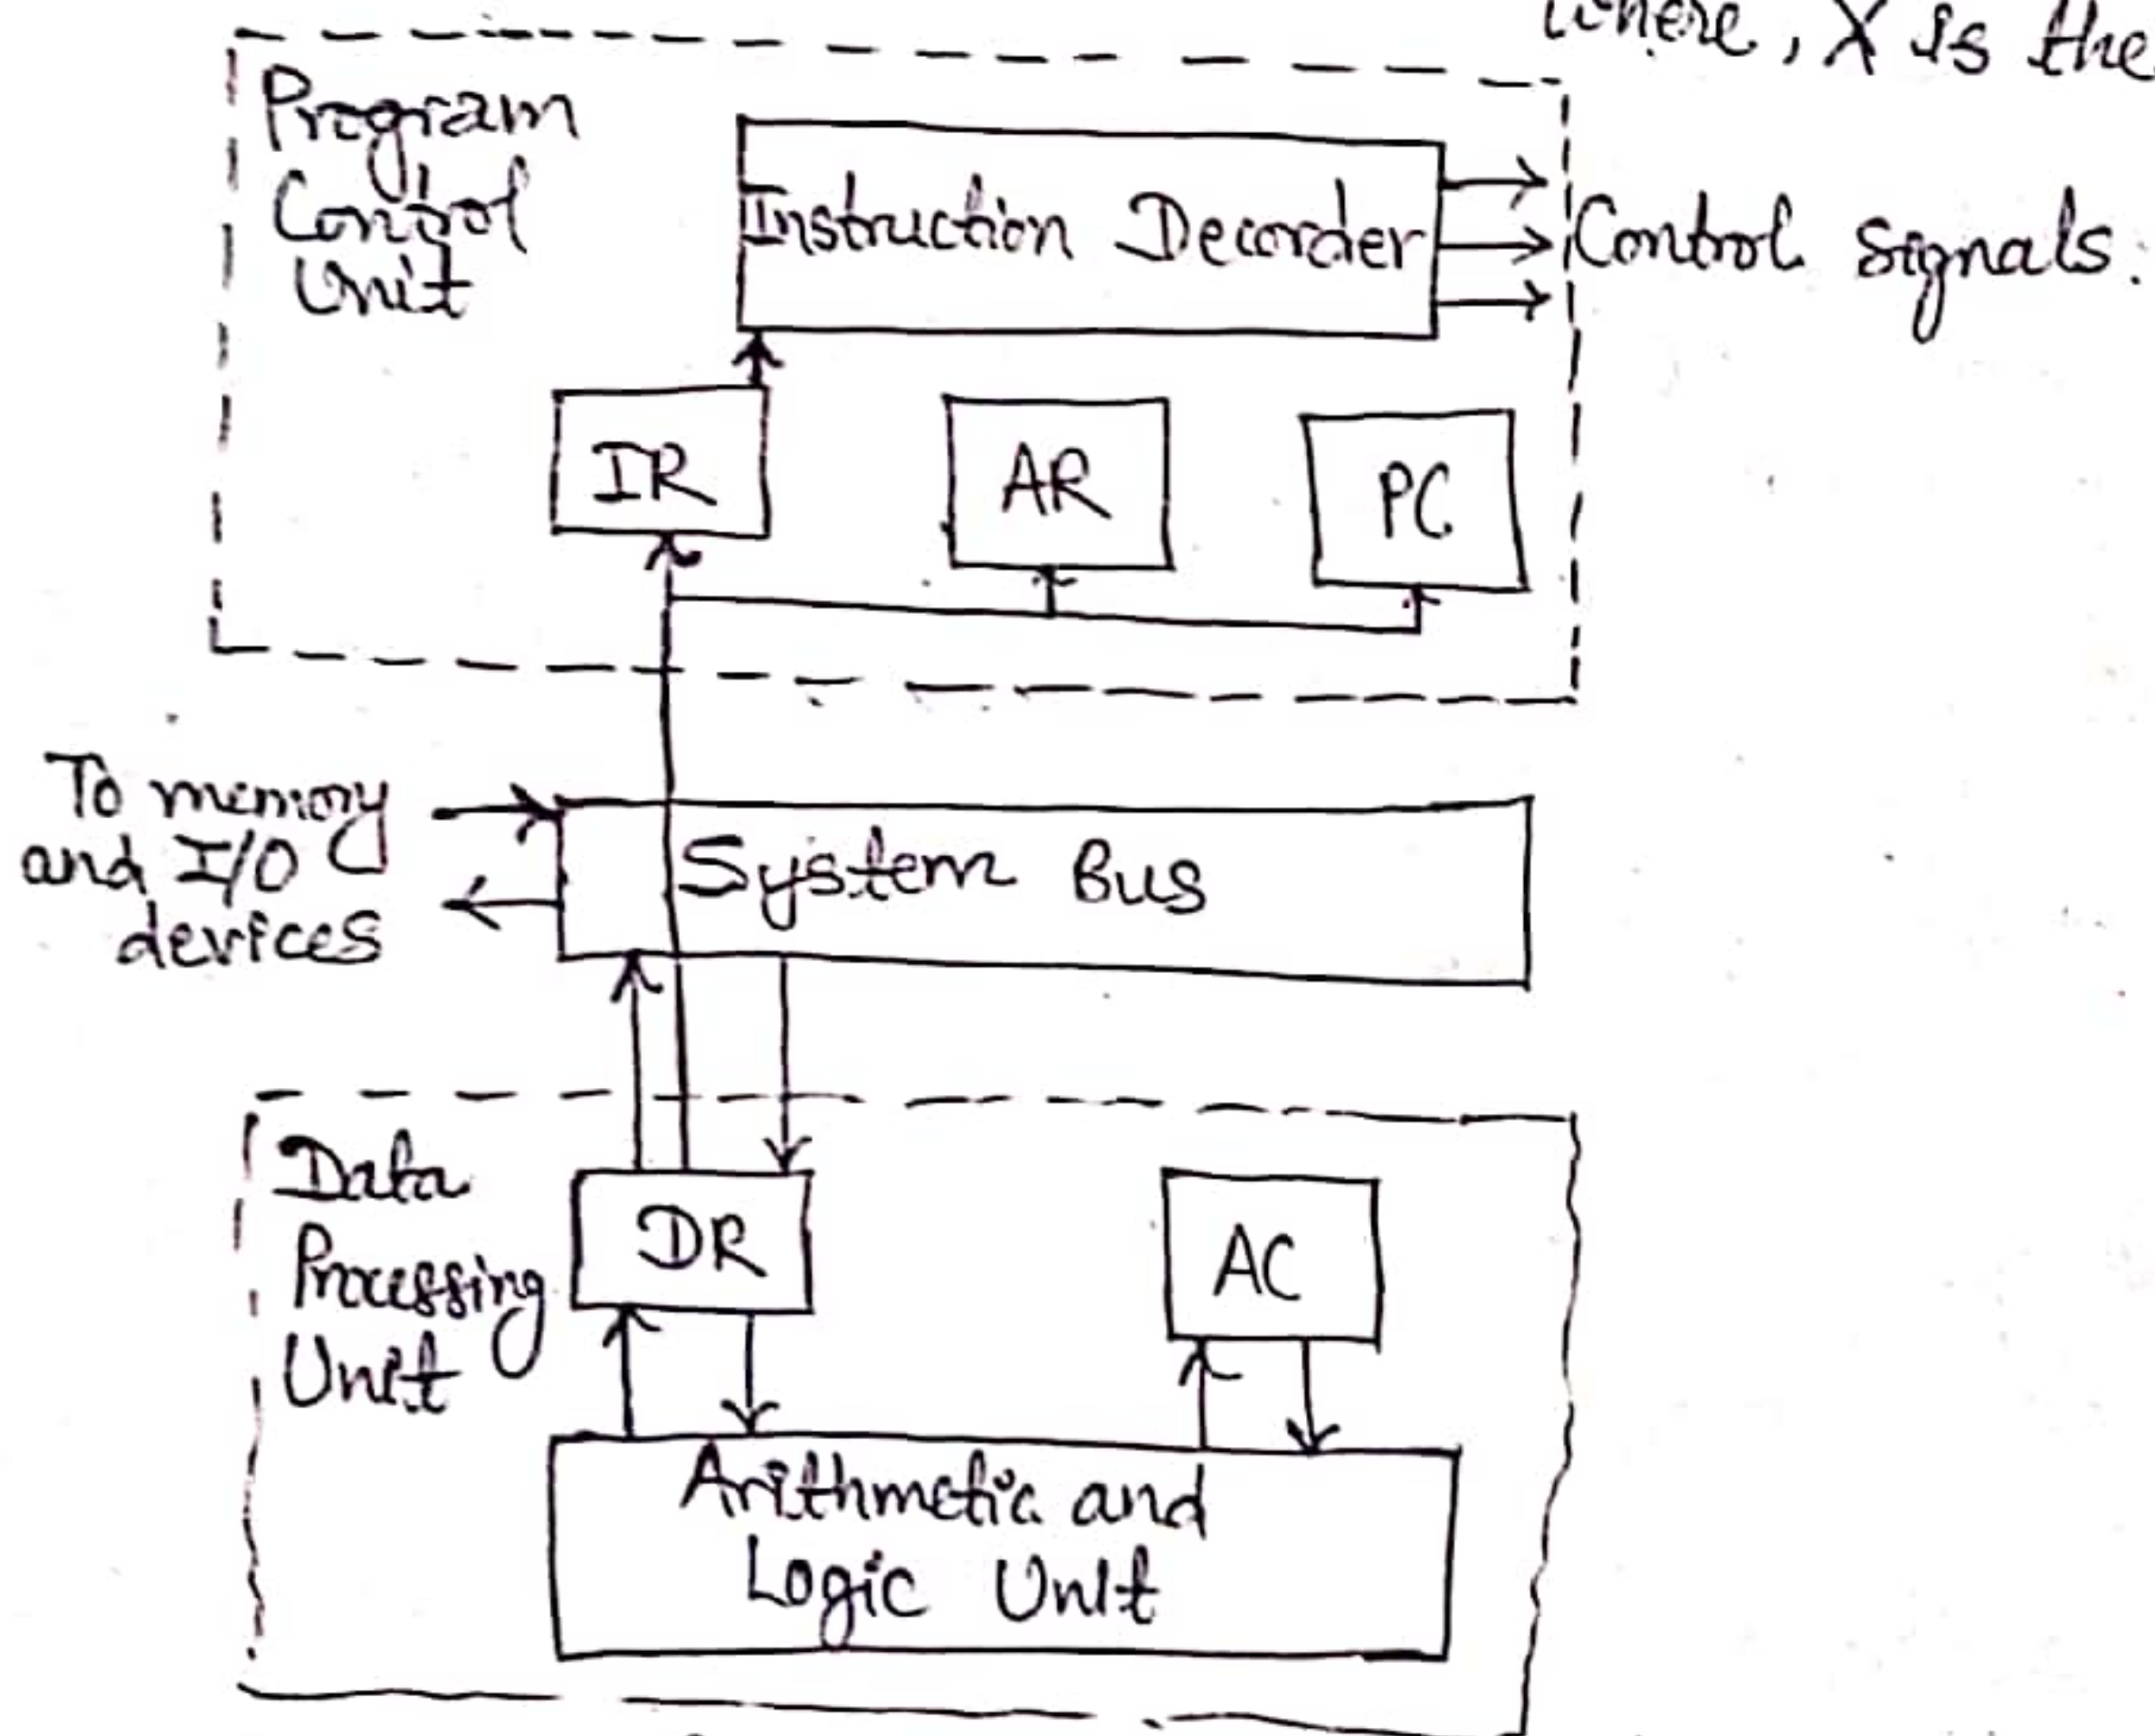 where, X is the
Program
Control
Unit
Instruction Decorder
Control signals.
IR
AR
PC
To memory
and I/O
devices
System Bus
Data
Processing
Unit
DR
AC
Arithmetic and
Logic Unit